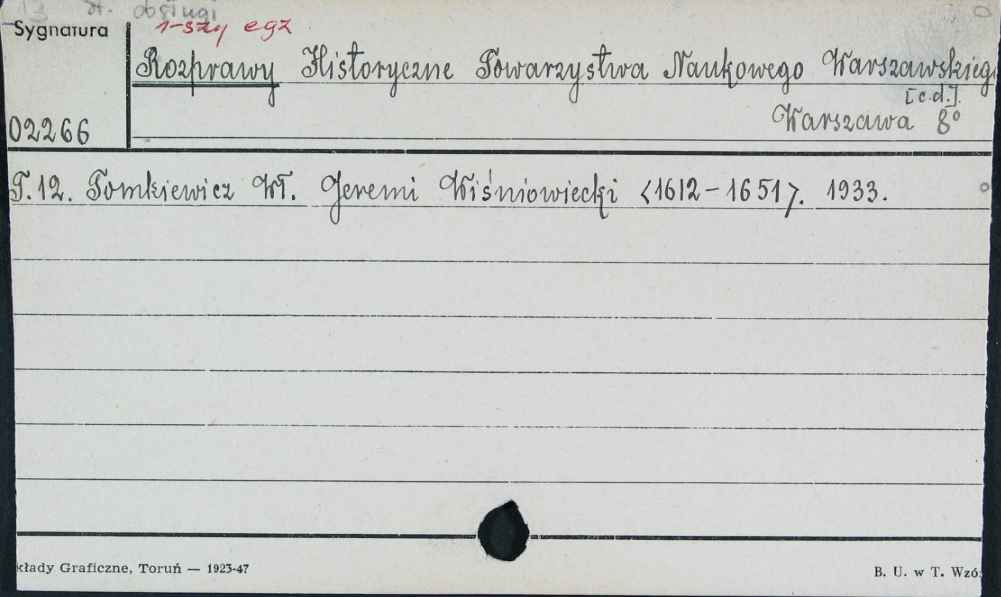 13 st. obsługi
1-szy egz
Sygnatura
Rozprawy Historyczne Towarzystwa Naukowego Warszawskieg
[c.d.].
02266
Warszawa 8°
T. 12. Tomkiewicz Wł. Jeremi Wiśniowiecki <1612-1651>. 1933.
kłady Graficzne, Toruń — 1923-47
B. U. w T. Wzó